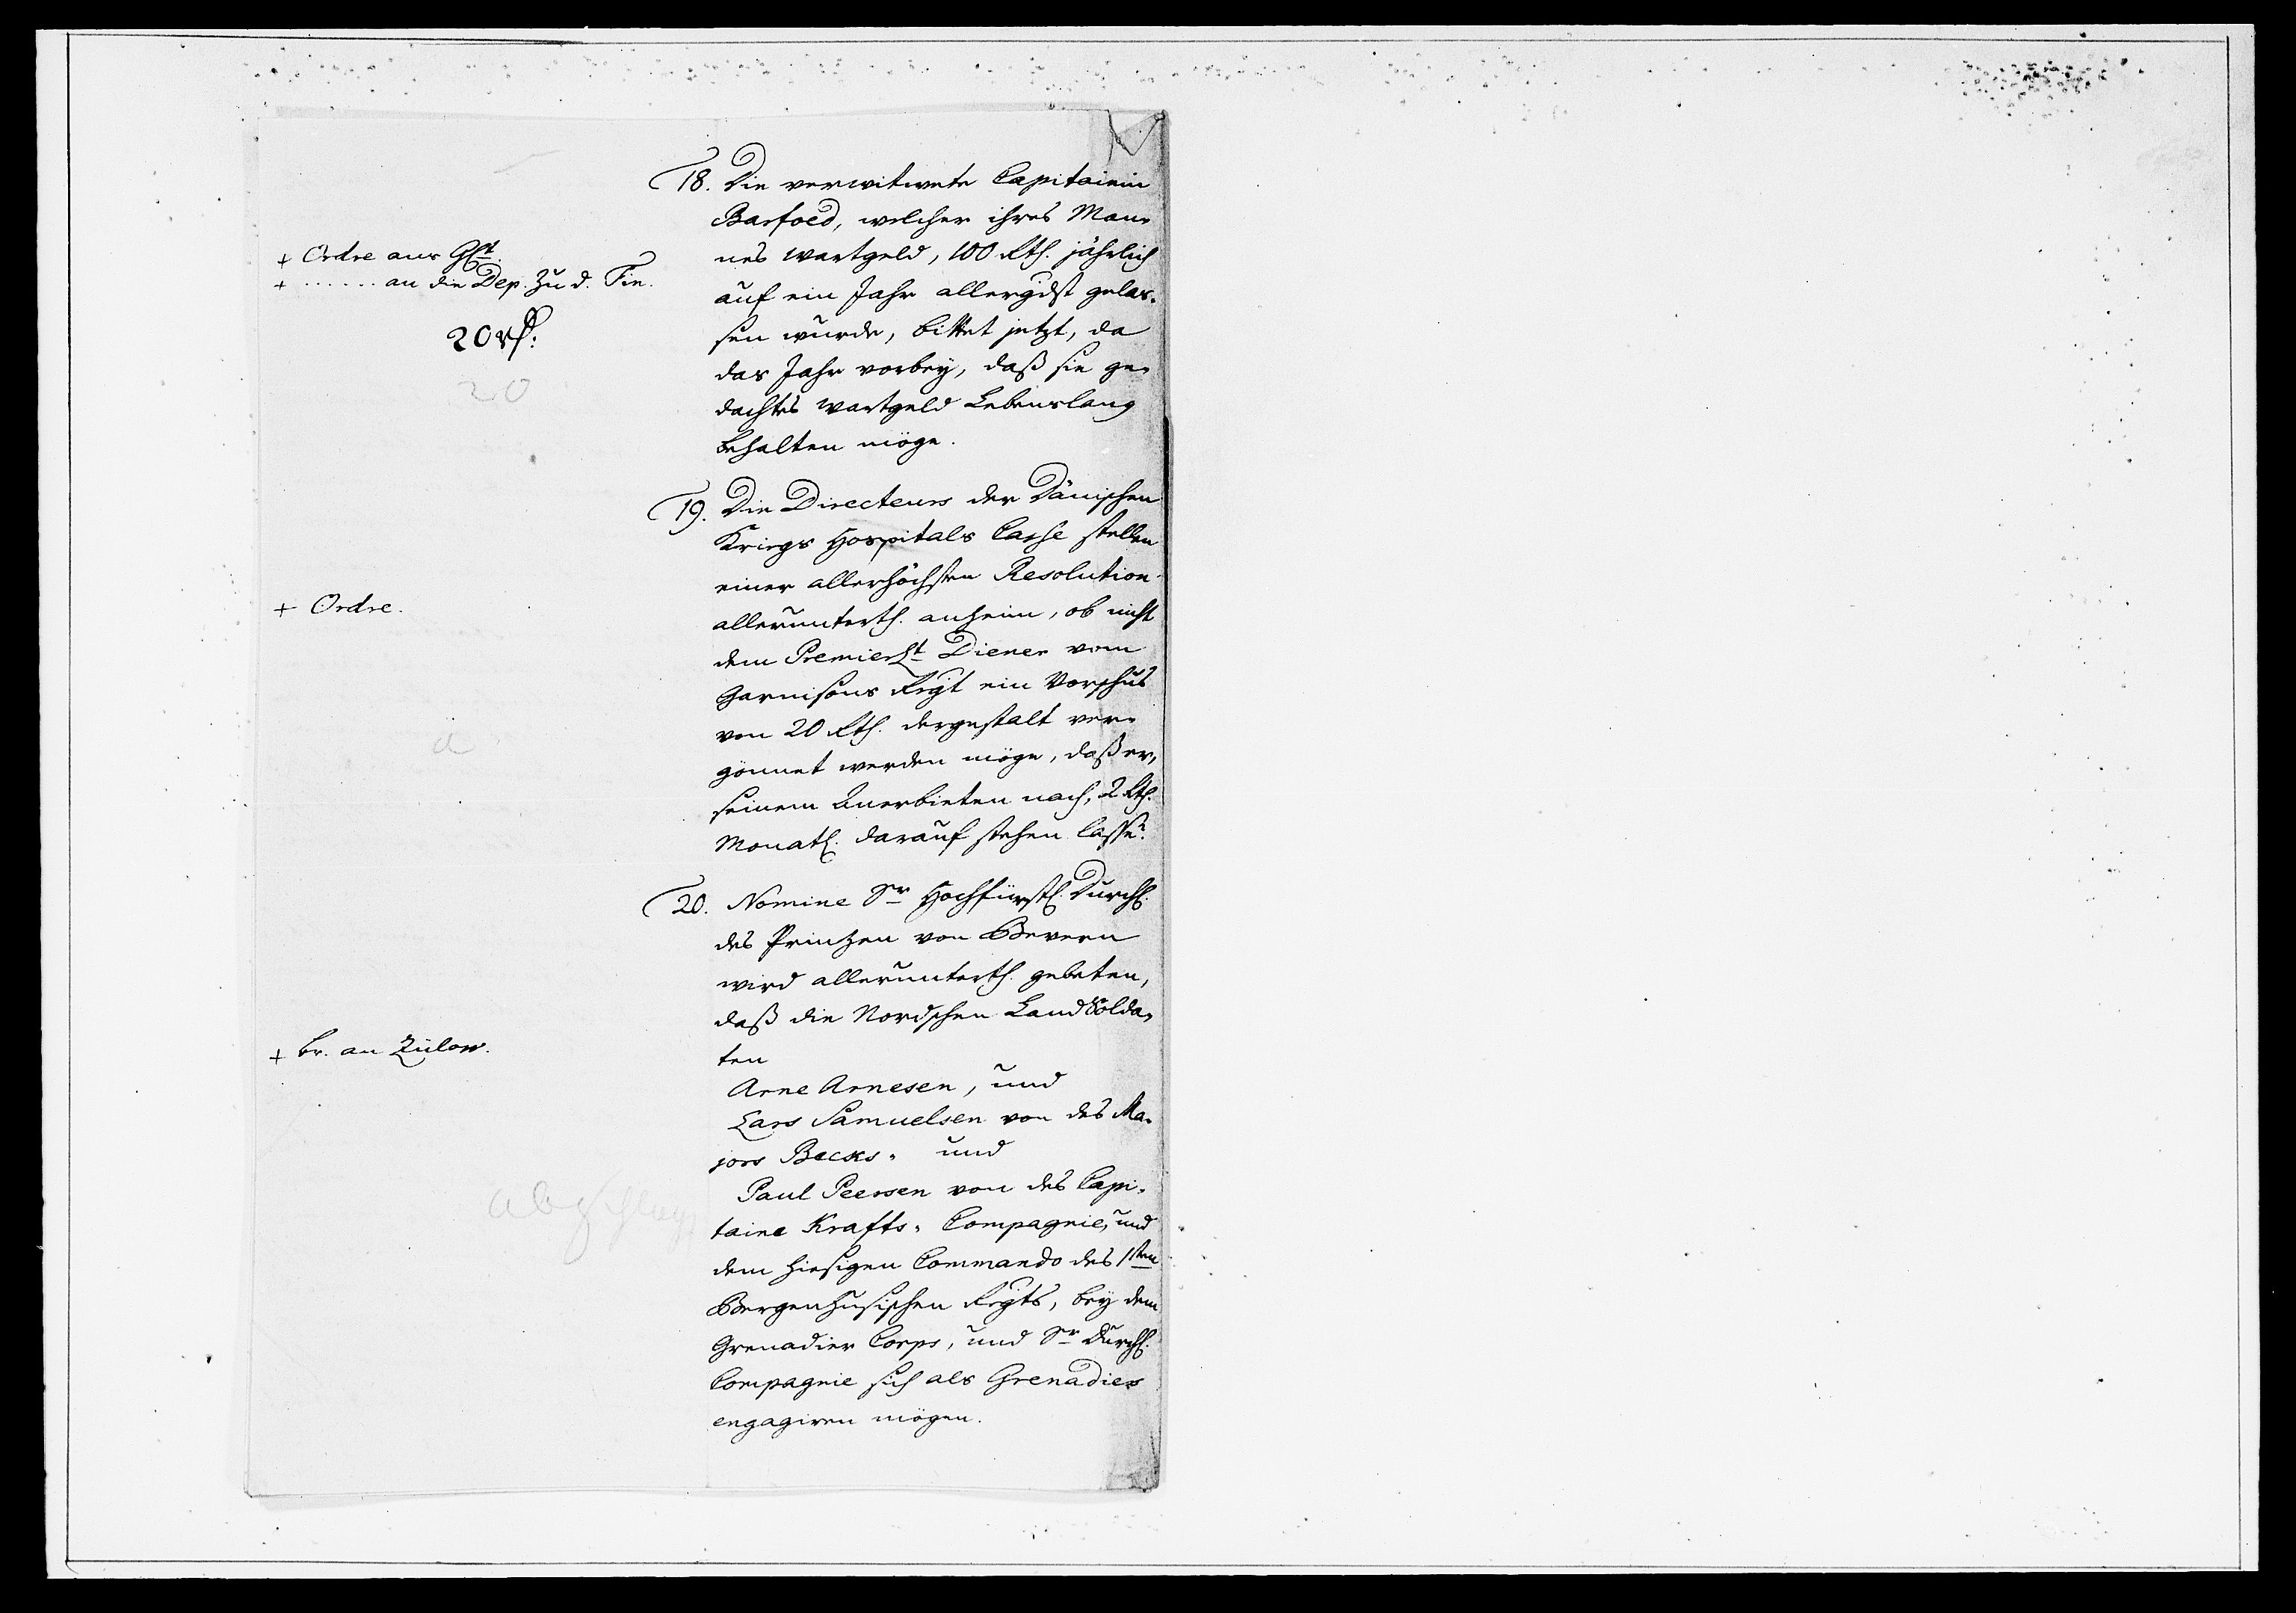 18. Die verwitwete Capitainin
Barfoed, welcher ihres Man„
nes Wartgeld, 100 Rth. jährlich
auf ein Jahr allergdst gelas„
sen wurde, bittet jetzt, da
das Jahr vorbey, daß sie ge„
dachtes Wartgeld Lebenslang
behalten möge.
+ Ordre ans
+ ...... an die Dep. zu d. Fin.
20 rth.
20
19. Die Directeurs der Dänischen
Kriegs Hospitals Casse stellen
einer allerhöchsten Resolution
allerunterth. anheim, ob nicht
dem Premierlt Diener vom
Garnisons Regt ein Vorschus
von 20 Rth. dergestalt ver„
gönnet werden möge, daß er,
seinem Anerbieten nach, 2 Rth.
Monatl. darauf stehen lasse?
+ Ordre.
20. Nomine Sr Hochfürstl. Durchl.
des Printzen von Bevern
wird allerunterth. gebeten,
daß die Nordschen Land Solda„
ten
Arne Arnesen, und
Lars Samuelsen von des Ma„
jors Becks„ und
Paul Peersen von des Capi„
taine Kraffts„ Compagnie, und
dem hiesigen Commando des 1sten
Bergenhusischen Regts, bey dem
Grenadier Corps, und Sr Durchl.
Compagnie sich als Grenadier
engagiren mögen.
+ br. an Zülow.
abgeschlagen